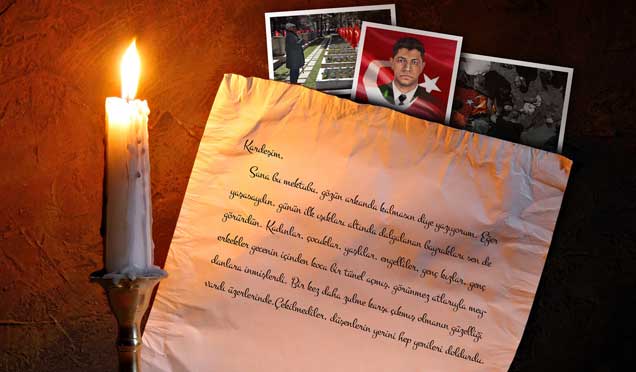 Kardeşim,
Sana bu mektubu, gözün arkanda kalmasın diye yazıyorum. Eğer
yaşasaydın, günün ilk ışıkları altında dalgalanan bayrakları sen de
görürdün. Kadınlar, çocuklar, yaşlılar, engelliler, genç kızlar, genç
erkekler gecenin içinden koca bir tünel açmış, görünmez atlarıyla mey-
danlara inmişlerdi. Bir kez daha zulme karşı çıkmış olmanın güzelliği
vardı üzerlerinde. Çekilmediler, düşenlerin yerini hep yenileri doldurdu.